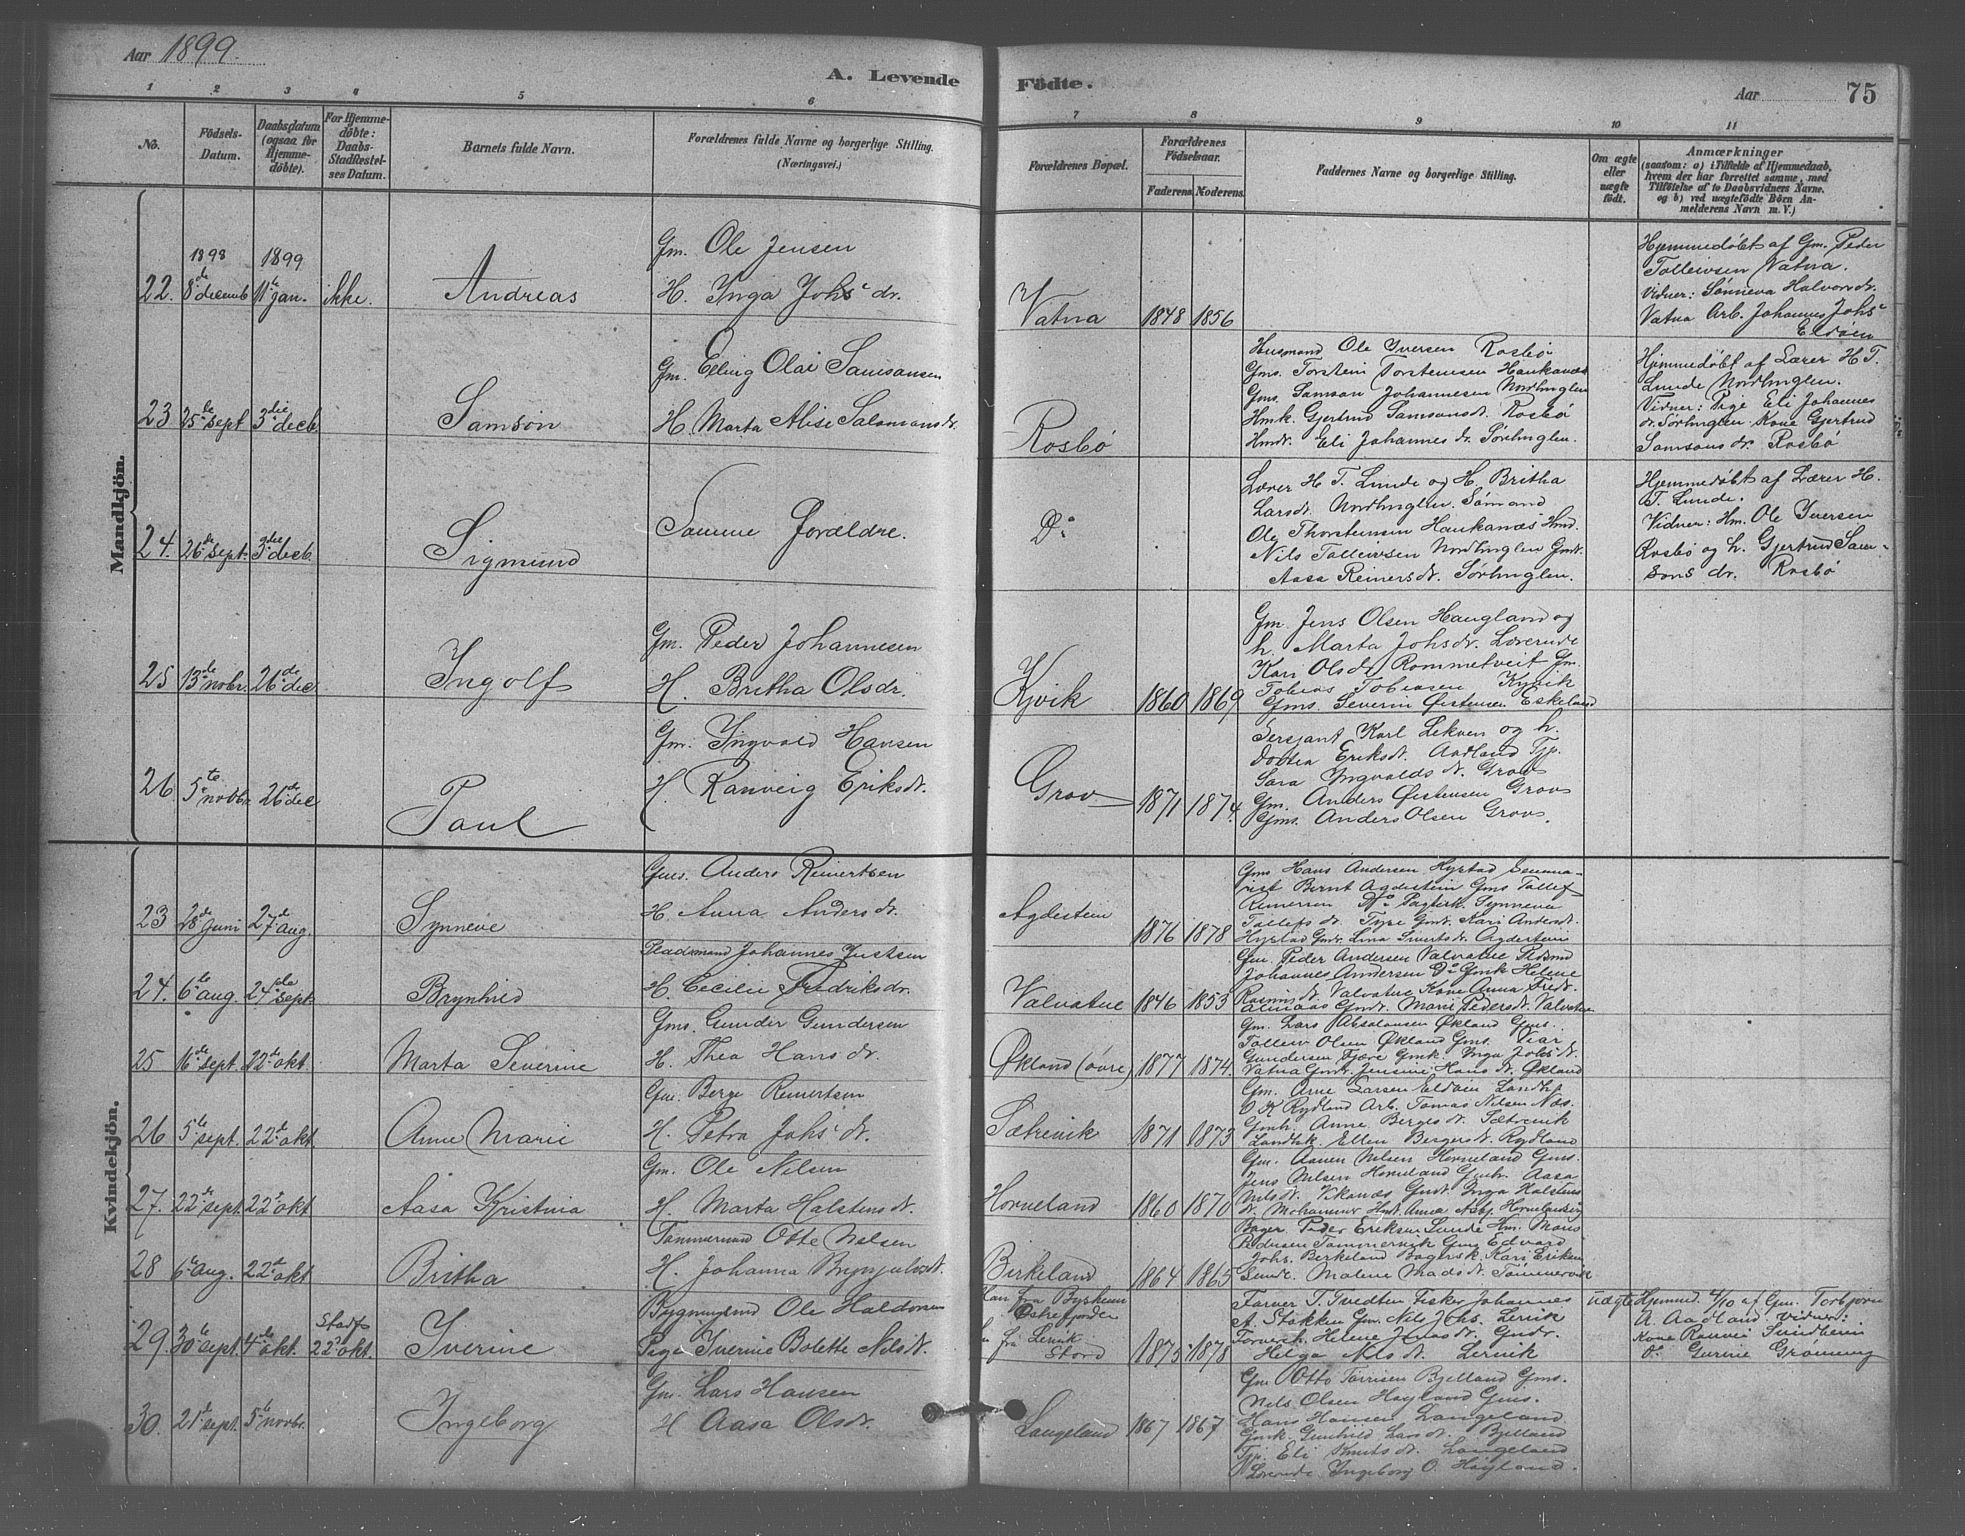 Aar 1899.
A. Levende Födte.
Aar 75
1 2 3 4 5 6 7 8 9 10 11
No.
Födsels-Datum.
Daabsdatum (ogsaa for Hjemme-döbte).
For Hjemme-döbte: Daabs-Stadfæstel-ses Datum.
Barnets fulde Navn.
Forældrenes fulde Navne og borgerlige Stilling.
(Næringsvei.)
Forældrenes Bopæl.
Forældrenes Födselsaar.
Faderens. Moderens.
Faddernes Navne og borgerlige Stilling.
Om ægte eller uægte födt.
Anmærkninger
(saasom: a) i Tilfælde af Hjemmedaab,
hvem der har forrettet samme, med
Tilföielse af to Daabsvidners Navne,
og b) ved uægtefödte Börn An-
melderens Navn m. V.)
Mandkjön.
22. 1898 8de decemb 1899 11te jan. ikke. Andreas
Gm. Ole Jensen
H. Inga Johs dr.
Vatna 1848 1856
Hjemmedøbt af Gm. Peder
Tolleivsen Vatna.
Vidner: Sønneva Halvorsdr.
Vatna Arb. Johannes Johs
Eldøen
23 25te sept 3die decb. Samson
Gm. Elling Olai Samsonsen
H. Marta Alise Salamonsdr.
Rosbø
Husmand Ole Iversen Rosbø
Gms. Torstein Torsteinsen Haukanæs
Gms. Samson Johannesen Nordhuglen
Hmk. Gjertrud Samsonsdr. Rosbø
Hmdr. Eli Johannesdr. Sørhuglen.
Hjemmedøbt af Lærer H. T.
Lunde Nordhuglen.
Vidner: Pige Eli Johannes
dr. Sørhuglen. Kone Gjertrud
Samsons dr. Rosbø
24. 26de sept. 3die decb. Sigmund
Samme Forældre.
Do
Lærer H. T. Lunde og H. Britha
Larsdr. Nordhuglen Sømand
Ole Thorsteinsen Haukanæs Hmd.
Nils Tolleivsen Nordhuglen Gmdr.
Aasa Reinersdr. Sørhuglen.
Hjemmedøbt af Lærer H.
T. Lunde.
Vidner: Hm. Ole Iversen
Rosbø og h. Gjertrud Sam-
sons dr. Rosbø
25 13de nobr. 26de dec. Ingolf
Gm. Peder Johannesen
H. Britha Olsdr.
Kjvik 1860 1869
Gm. Jens Olsen Haugland og
h. Marta Johsdr. Lærerinde
Kari Olsdr. Rommetveit Gm.
Tobias Tobiasen Kyvik
Gms. Severin Øistensen Eskeland
26 5te novbr. 26de dec Paul
Gm. Ingvald Hansen
H. Ranveig Eriksdr.
Grov 1871 1874.
Sersjant Karl Lekven og h.
Dortea Eriksdr. Aadland Tjp.
Sara Ingvaldsdr. Grov
Gm. Anders Øistensen Grov
Gms. Anders Olsen Grov.
Kvindekjön.
23 28de Juni 27de aug. Synneve
Gms. Anders Reinertsen
H. Anna Andersdr.
Agdestein 1876 1878
Gms Hans Andersen Hystad
Bernt Agdestein Gms Tollef
Reinersen Do Synneva
Tollefsdr. Tyse Gmdr. Kari Andersdr.
Hystad Gmdr. Lina Sivertsdr. Agdestein
24. 6te aug. 24de sept. Brynhild
Pladsmand Johannes Justsen
H. Cecilie Fredriksdr.
Valvatne 1846 1853
Gm. Peder Andersen Valvatne
Johannes Andersen Do Gmk Helene
Rasmusdr. Valvatne Kone Anna Fredr.
Almaas Gmdr. Mari Pedersdr. Valvatne
25 16de sept. 22de okt. Marta Severine
Gms. Gunder Gundersen
H. Thea Hansdr.
Økland (øvre) 1877 1874.
Gm. Lars Absalonsen Økland Gms.
Tolleiv Olsen Økland Gms. Vear
Gundersen Fjære Gmk. Inga Johsdr.
Vatna Gmdr. Jensine Hansdr. Økland
26 5te sept. 22de okt. Anne Marie
Gm. Berge Reinertsen
H. Petra Johs dr.
Sætrevik 1871 1873
Gm. Arne Larsen Eldøen Landh.
O K Rydland Arb. Tomas Nilsen Næs.
Gmk. Anne Bergesdr. Sætrevik
Landhk. Ellen Bergersdr. Rydland
27. 22de sept. 22de okt Aasa Kristina
Gm. Ole Nilsen
H. Marta Halstensdr.
Horneland 1860 1870
Gm. Aanen Nilsen Horneland Gms.
Jens Nilsen Horneland Gmk. Aasa
Nilsdr. Vikanæs Gmdr. Inga Halstens
dr. Anna Asbj. Horneland
28 6te aug. 22de okt Britha
Tømmermand Otte Nelsen
H. Johanna Brynjulvsdr.
Birkeland 1864 1865
Bager Peder Eriksen Lunde Hm. Mons
Pedersen Tømmervik Gms Edvard
Johs. Berkeland Bagersk. Kari Eriksen
Lunde. Malene Madsdr. Tømmervik
29. 30te sept. 4de okt. Stadf. 22de okt. Iverine
Bygningsmd Ole Haldorsen
Pige Iverine Bolette Nilsdr.
Han fra Byrkem
Østrefjorden
h. fra Lervik
Stord
1875 1878
Farver T. Tvedten Fisker Johannes
A. Stokken Gm. Nils Johs. Lervik
Farversk. Helene Gmdr.
Helga Nilsdr. Lervik
uægte
Hjemmed. 4/10 af Gm. Torbjørn
A. Aadland. vidner:
Kone Ranvei Sundheim
Do Gurine Grønning
30. 21de sept. 5te novbr. Ingeborg
Gm. Lars Hansen
H Aasa Olsdr.
Langeland 1867 1867
Gm Otto Torrisen Bjelland Gms.
Nils Olsen Høyland Gms.
Hans Hansen Langeland
Gmk. Gunhild Larsdr. Bjelland
Tjp. Eli Knutsdr. Langeland
Lærerinde Ingeborg O. Høyland.